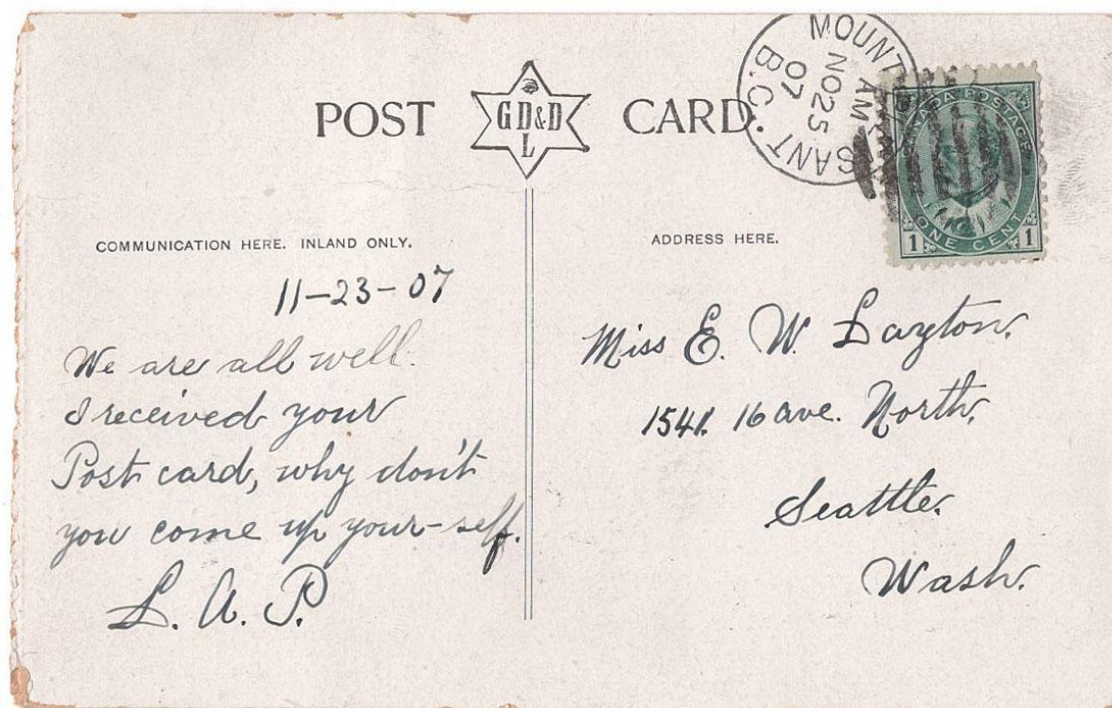 POST GD&D L CARD
MOUNT PLEASANT
AM
NO 25
07
B.C.
CANADA POSTAGE
ONE CENT
1 1
COMMUNICATION HERE. INLAND ONLY.
11-23-07
We are all well.
I received your
Post card, why don't
you come up your-self.
L. A. P.
ADDRESS HERE.
Miss E. W. Layton.
1541. 16 ave. North,
Seattle.
Wash.